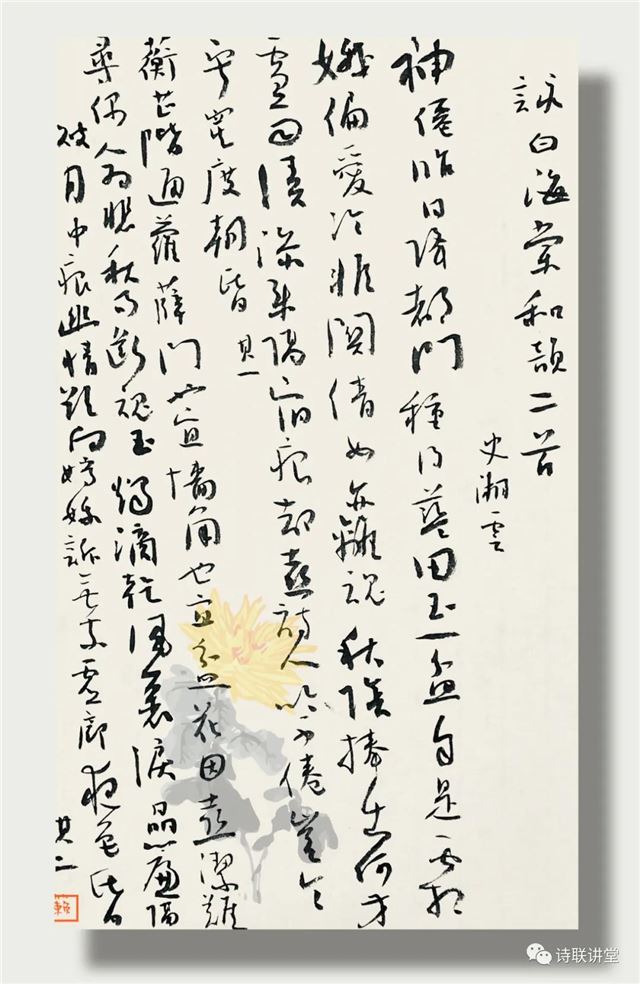 詠白海棠和韻二首
史湘雲
神僊昨日降都門種得藍田玉一盆自是霜
娥偏愛冷非關倩女亦離魂秋陰捧出何方
雪雨漬添來隔宿痕却喜詩人吟不倦豈令
寂寞度朝昏 其一
蘅芷階通蘿薜門也宜墻角也宜盆花因喜潔難
尋偶人為悲秋易斷魂玉燭滴乾風裏淚晶簾隔
破月中痕幽情欲向嫦娥訴無奈虛廊夜色昏
其二
賴
诗联讲堂